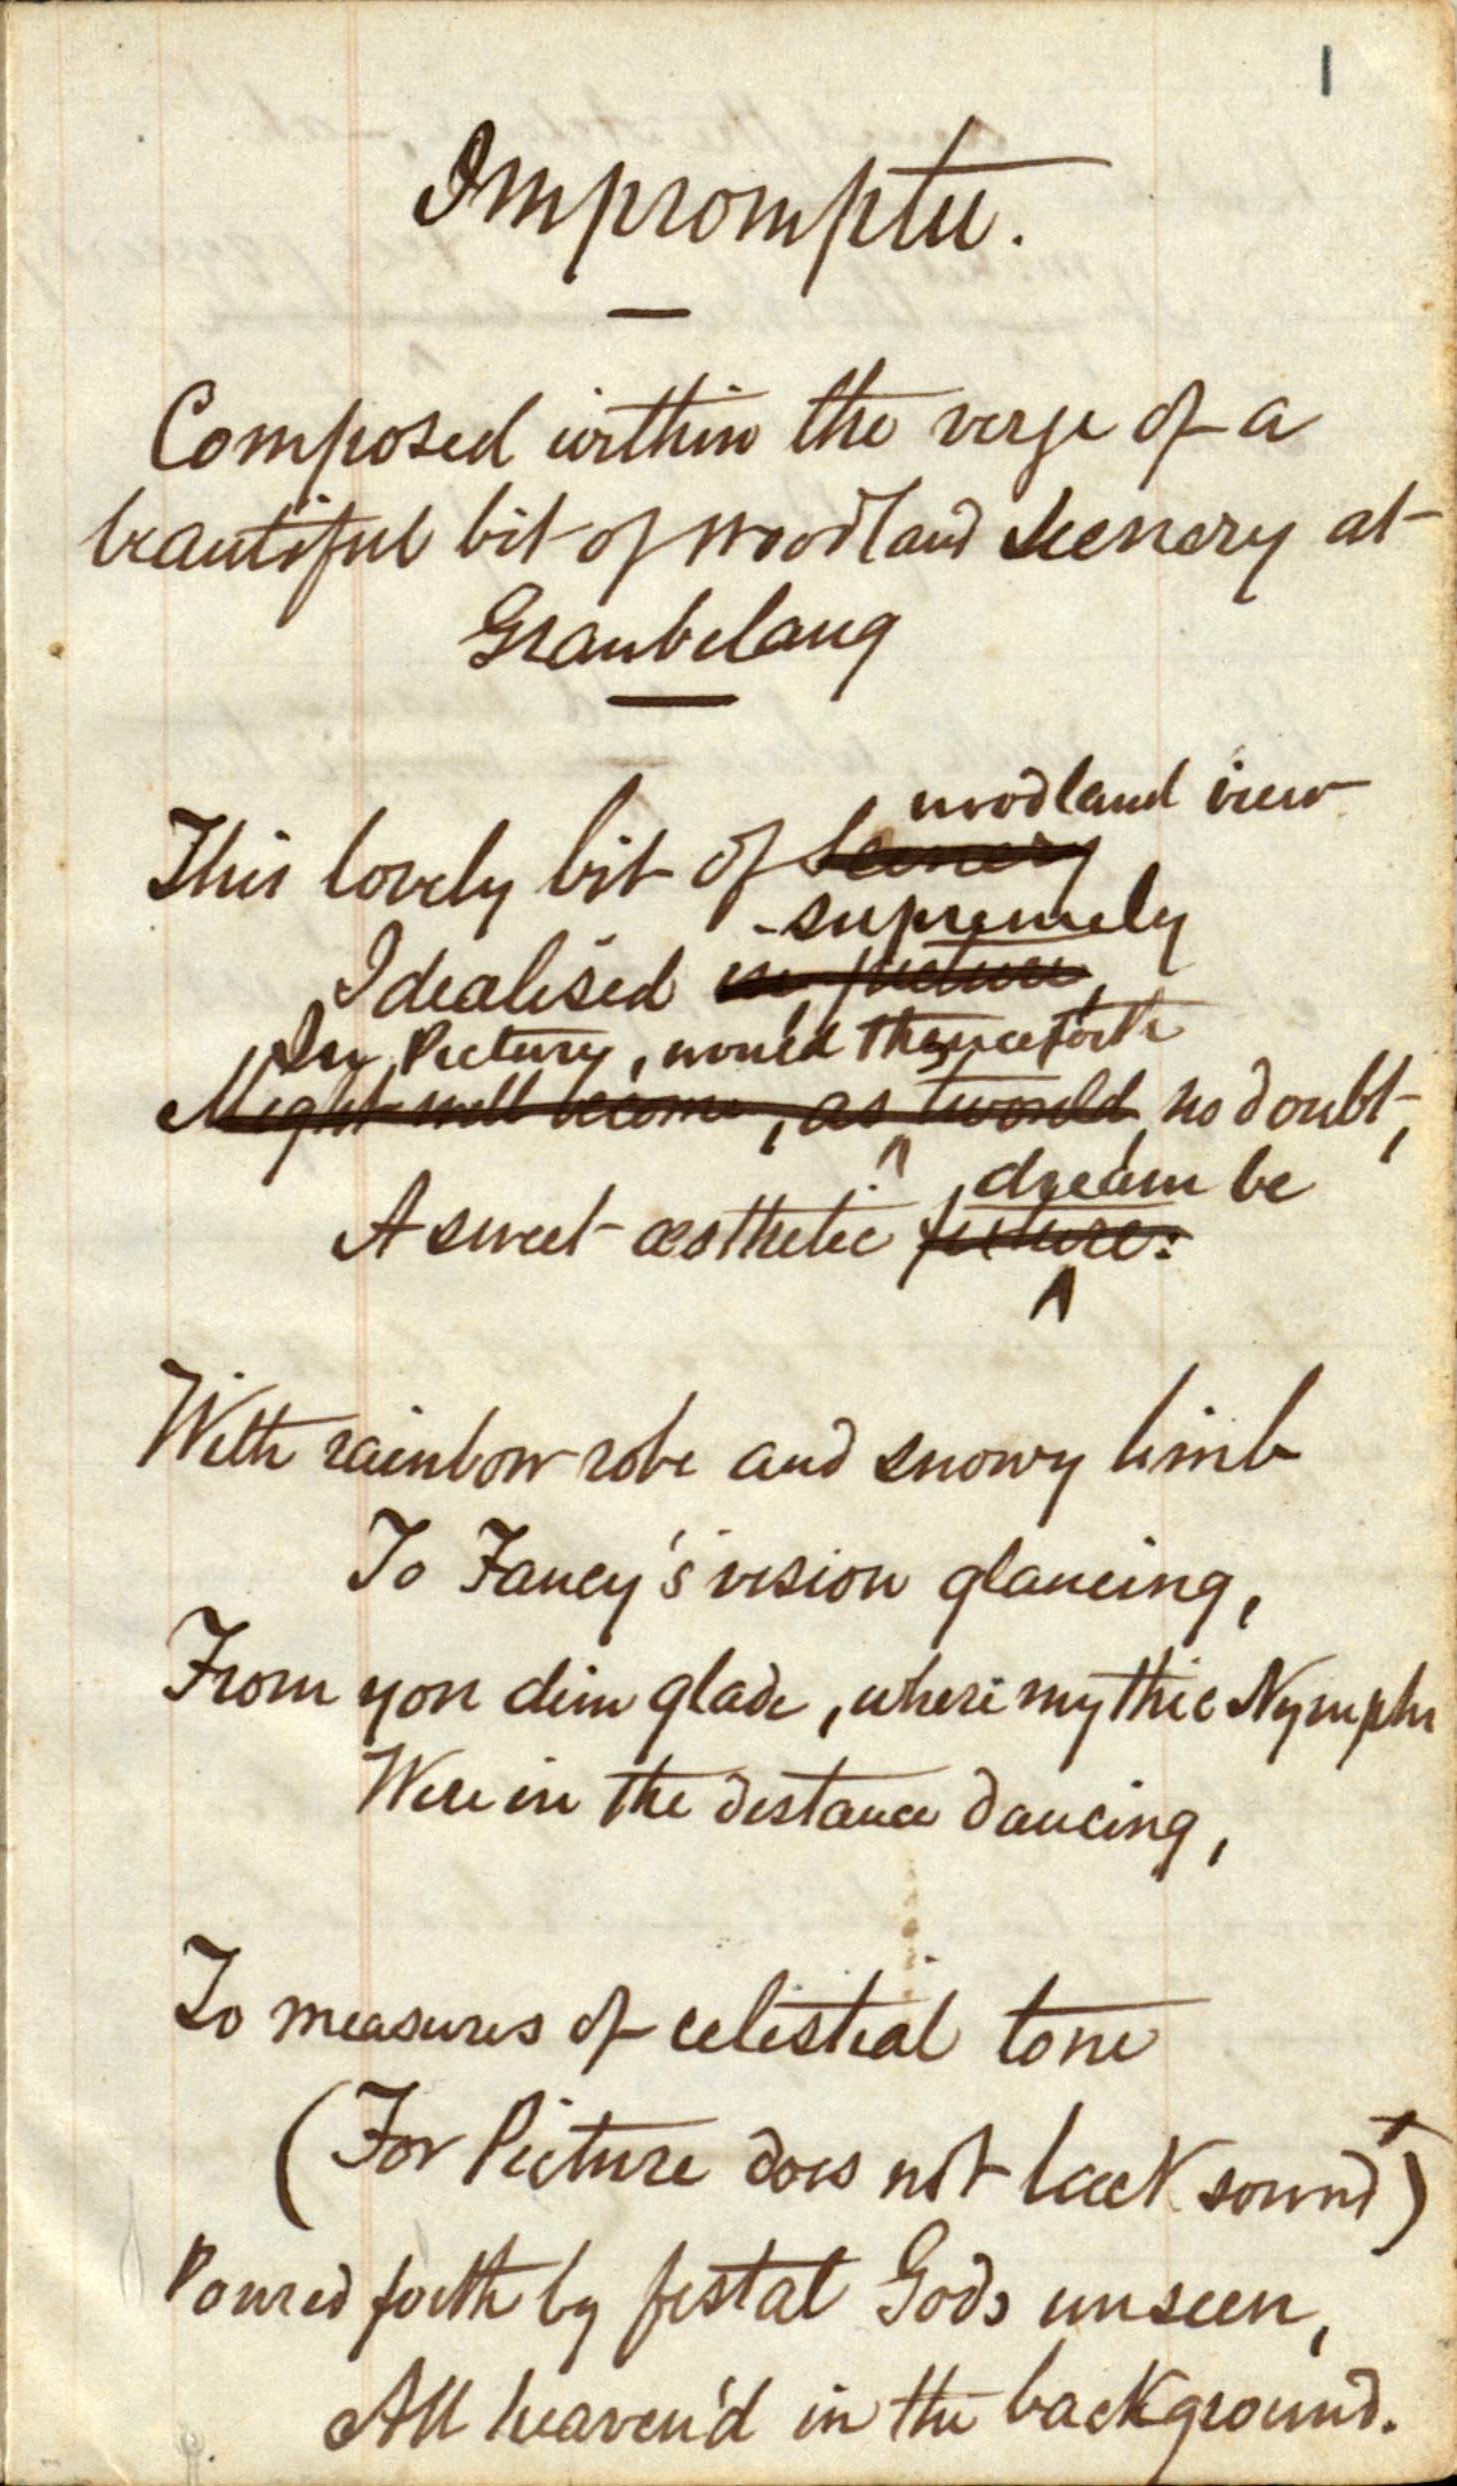 1
Impromptu.
Composed within the verge of a
beautiful bit of woodland Scenery at
Graubelaug
woodland view
This lovely bit of Scenery
supremely
Idealised in picture,
In Picture, would thenceforth
Might well become, as 'twould, no doubt,
dream be
A sweet æsthetic picture:
With rainbow robe and snowy limb
To Fancy's vision glancing,
From yon dim glade, where mythic Nymphs
Were in the distance dancing,
To measures of celestial tone
(For Picture does not lack sound+)
Poured forth by festal Gods unseen,
All heaven'd in the background.